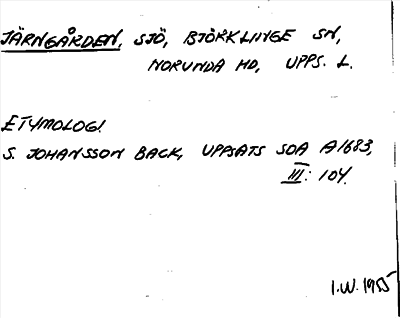 JÄRNGÅRDEN, SJÖ, BJÖRKLINGE SN,
NORUNDA HD, UPPS. L.
ETYMOLOGI.
S. JOHANSSON BACK, UPPSATS SOA A1683,
III: 104.
I.W. 1955